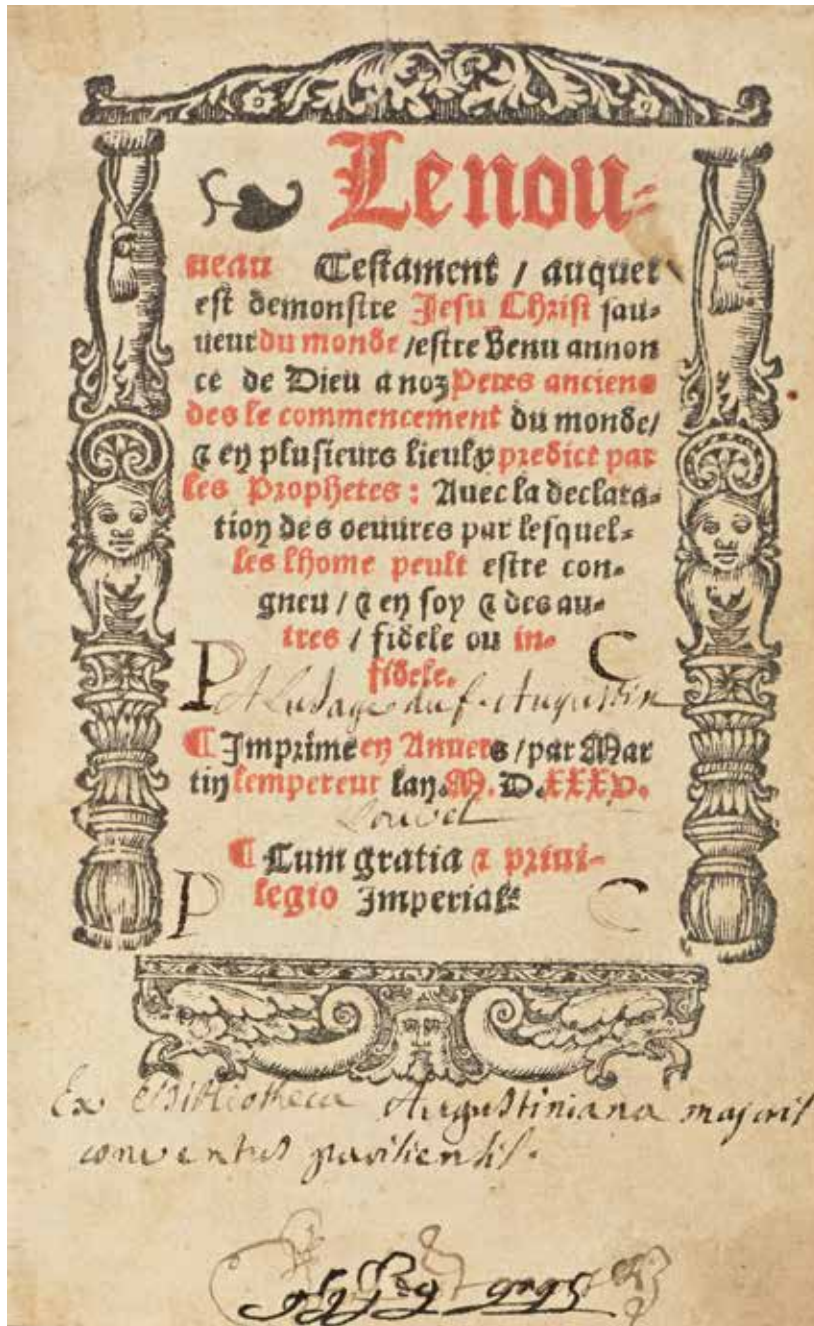 Le nou-
ueau Testament / auquel
est demonstre Jesu Christ sau-
ueur du monde / estre venu annon
ce de Dieu a noz Peres anciens
des le commencement du monde /
& en plusieurs lieulx predict par
les Prophetes : Auec la declara-
tion des oeuures par lesquel-
les lhome peult estre con-
gneu / & en soy & des au-
tres / fidele ou in-
fidele.
P C
A Lusage du f. Augustin
¶ Imprime en Anuers / par Mar
tin lempereur lan. M. D. XXXV.
Louvet
¶ Cum gratia & priui-
legio Imperiali
P C
Ex Bibliotheca Augustiniana majoris
conventus parisiensis.